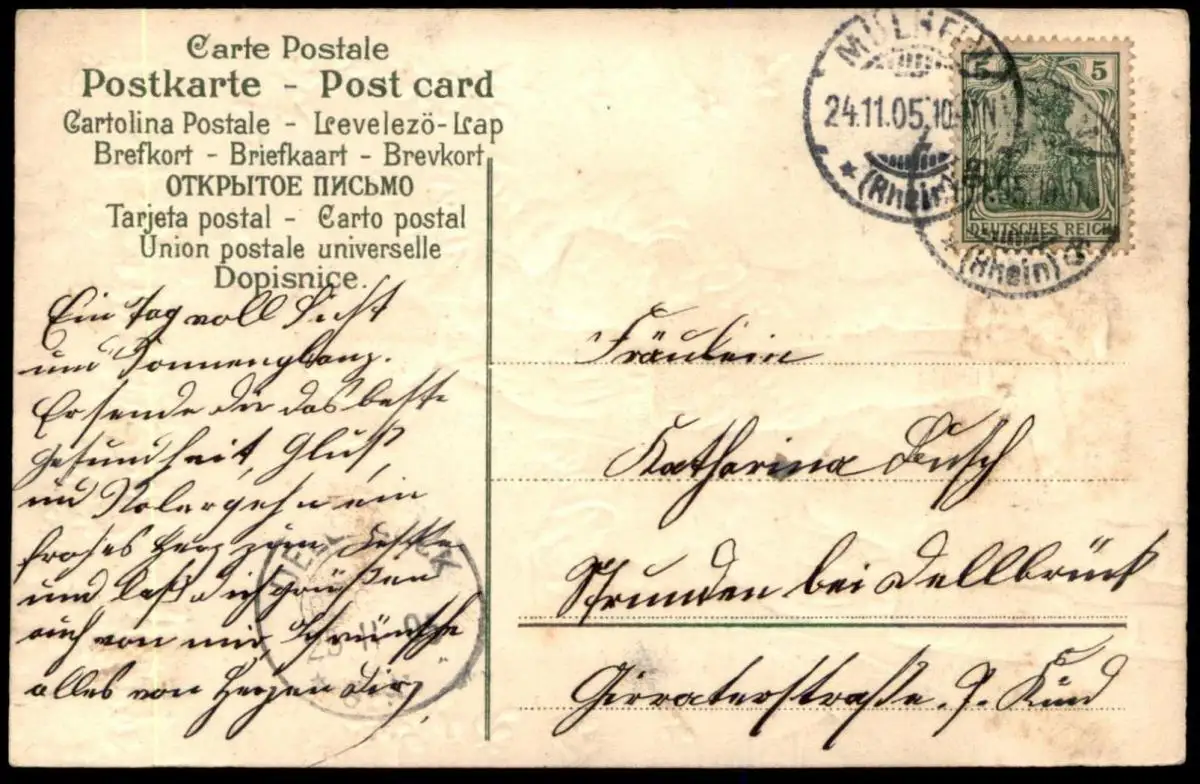 Carte Postale
Postkarte - Post card
Cartolina Postale - Levelezö-Lap
Brefkort - Briefkaart - Brevkort
ОТКРЫТОЕ ПИСЬМО
Tarjeta postal - Carto postal
Union postale universelle
Dopisnice.
MÜLHEIM
24.11.05. 10-11N
* (Rhein)
5 5
DEUTSCHES REICH
* (Rhein)
Ein Tag voll Licht
und Sonnenglanz.
Er sende dir das beste
Gesundheit, Glück,
und Wolergehn ein
frohes Herz zum Feste
und laß dich grüßen
auch von mir Ich wünsche
alles von Herzen Dir,
DELLBRÜCK
Fräulein
Katharina Busch
Strunden bei Dellbrück